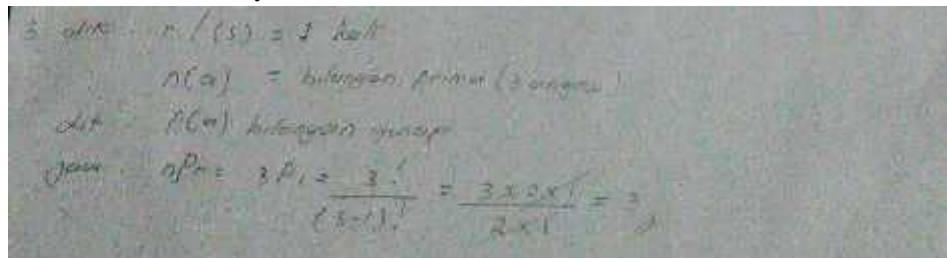 3 dik : n (s) = 1 kali
n(a) = bilangan prima (3 angka)
dit : P(a) bilangan
Jawab : nPr = 3P1 = 3! / (3-1)! = 3x2x1 / 2x1 = 3 //